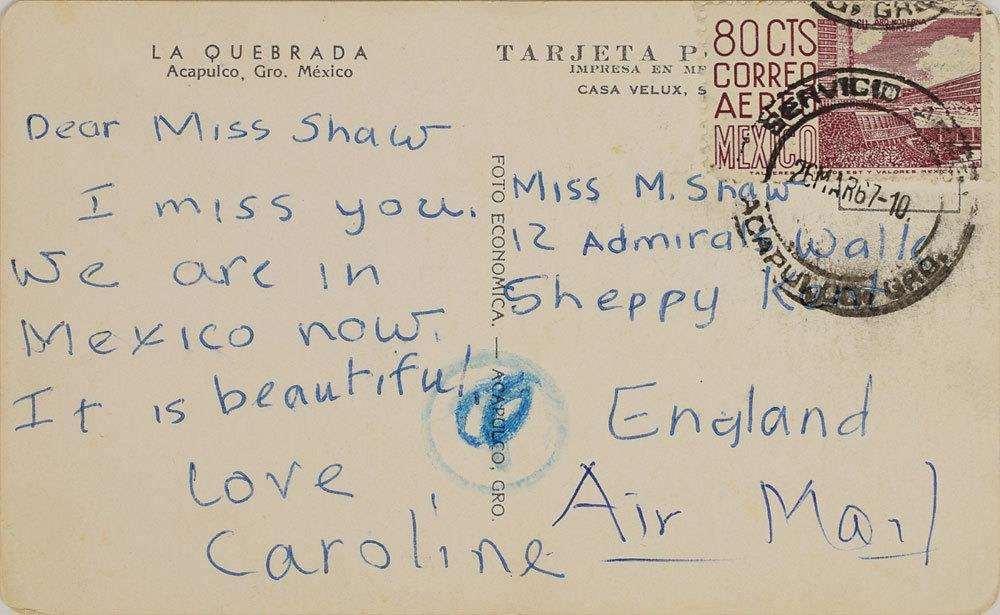 LA QUEBRADA
Acapulco, Gro. México
Dear Miss Shaw
I miss you.
We are in
Mexico now.
It is beautiful!
Love
Caroline
FOTO ECONOMICA. — ACAPULCO, GRO.
TARJETA P
IMPRESA EN ME
CASA VELUX, S
80 CTS
CORREO
AEREO
MEXICO
ARQ. MODERNA
SERVICIO
26MAR67-10
ACAPULCO, GRO.
Miss M. Shaw
12 Admiral Walk
Sheppy Kent
England
Air Mail